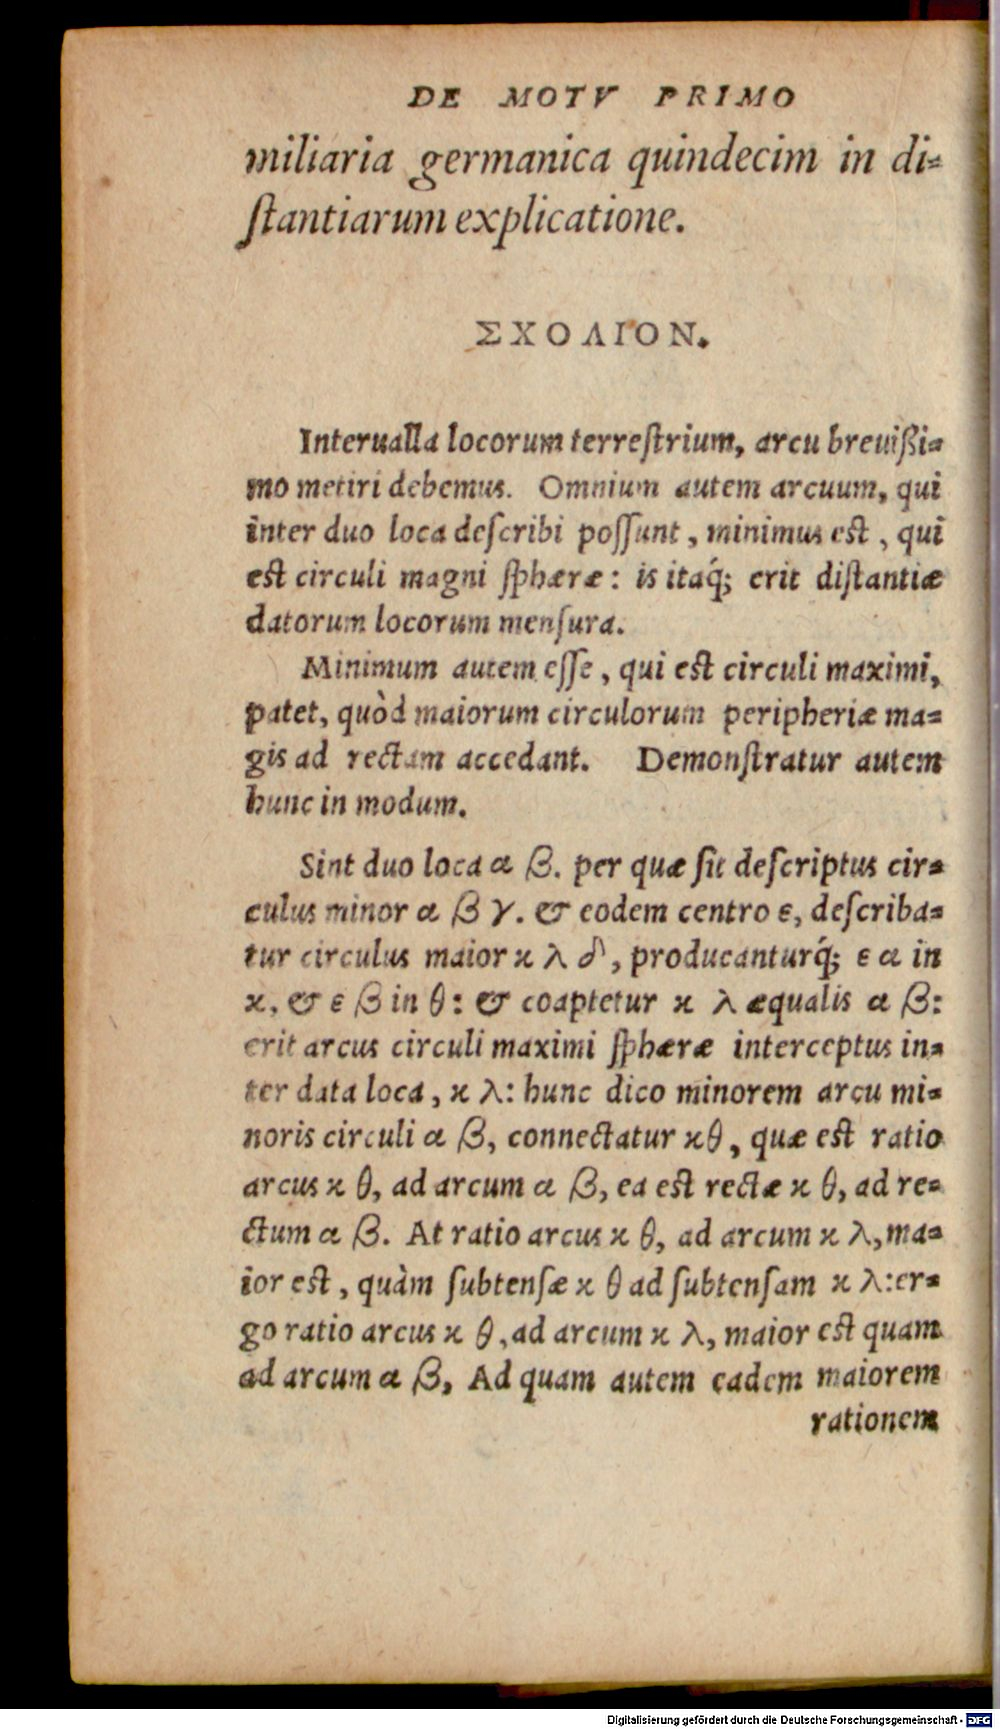 DE MOTV PRIMO
miliaria germanica quindecim in di-
ſtantiarum explicatione.
ΣΧΟΛΙΟΝ.
Interualla locorum terreſtrium, arcu breuißi-
mo metiri debemus. Omnium autem arcuum, qui
inter duo loca deſcribi poſſunt, minimus est, qui
est circuli magni ſphæræ: is itaq́; erit diſtantiæ
datorum locorum menſura.
Minimum autem eſſe, qui est circuli maximi,
patet, quòd maiorum circulorum peripheriæ ma-
gis ad rectam accedant. Demonſtratur autem
hunc in modum.
Sint duo loca α β. per quæ ſit deſcriptus cir-
culus minor α β γ. & eodem centro ε, deſcriba-
tur circulus maior κ λ δ, producanturq́; ε α in
κ, & ε β in θ: & coaptetur κ λ æqualis α β:
erit arcus circuli maximi ſphæræ interceptus in-
ter data loca, κ λ: hunc dico minorem arcu mi-
noris circuli α β, connectatur κθ, quæ est ratio
arcus κ θ, ad arcum α β, ea est rectæ κ θ, ad re-
ctum α β. At ratio arcus κ θ, ad arcum κ λ, ma-
ior est, quàm ſubtenſæ κ θ ad ſubtenſam κ λ: er-
go ratio arcus κ θ, ad arcum κ λ, maior est quam
ad arcum α β, Ad quam autem eadem maiorem
rationem
Digitalisierung gefördert durch die Deutsche Forschungsgemeinschaft - DFG